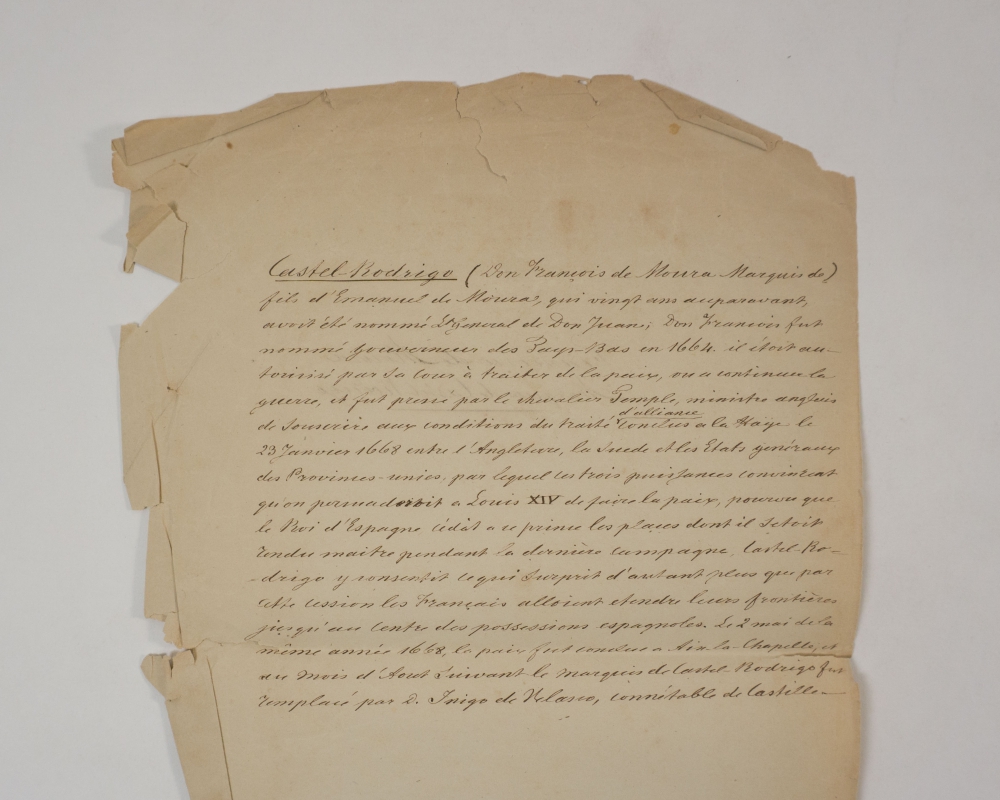 Castel-Rodrigo (Don François de Moura Marquis de)
fils d'Emanuel de Moura, qui vingt ans auparavant,
avoit été nommé Lt General de Don Juan; Don Francois fut
nommé gouverneur des Pays-Bas en 1664. il étoit au-
torisé par sa cour à traiter de la paix, ou a continuer la
guerre, et fut pressé par le chevalier Temple, ministre anglais
d'alliance
de souscrire aux conditions du traité conclus a la Haye le
23 Janvier 1668 entre l'Angleterre, la Suede et les Etats généraux
des Provinces-unies, par lequel les trois puissances convinrent
qu'on persuaderoit a Louis XIV de faire la paix, pourvu que
le Roi d'Espagne cédât a ce prince les places dont il s'etoit
rendu maitre pendant la dernière campagne, Castel-Ro-
-drigo y consentit ce qui surprit d'autant plus que par
cette cession les Français alloient etendre leurs frontières
jusqu'au centre des possessions espagnoles. Le 2 mai de la
même année 1668, la paix fut conclue a Aix-la-Chapelle, et
au mois d'Aout suivant le marquis de Castel-Rodrigo fut
remplacé par D. Inigo de Velasco, connétable de Castille